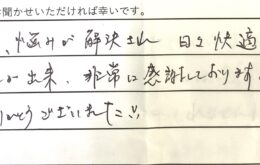 聞かせいただければ幸いです。
、悩みが解決され 日々快適
が出来、非常に感謝しております。
りがとうございました!!